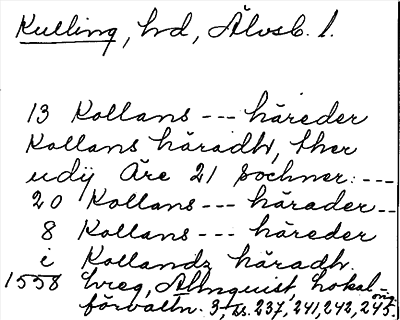 Kulling, hd, Älvsb. l.
13 Kollans --- häreder
Kollans häradh, ther
udij Äre 21 sochner: ---
20 Kollans --- härader --
8 Kollans --- häreder
i Kollandz häradh.
1558 Lreg, Almquist, Lokal-
förvaltn. 3, ss. 237, 241, 242, 245.